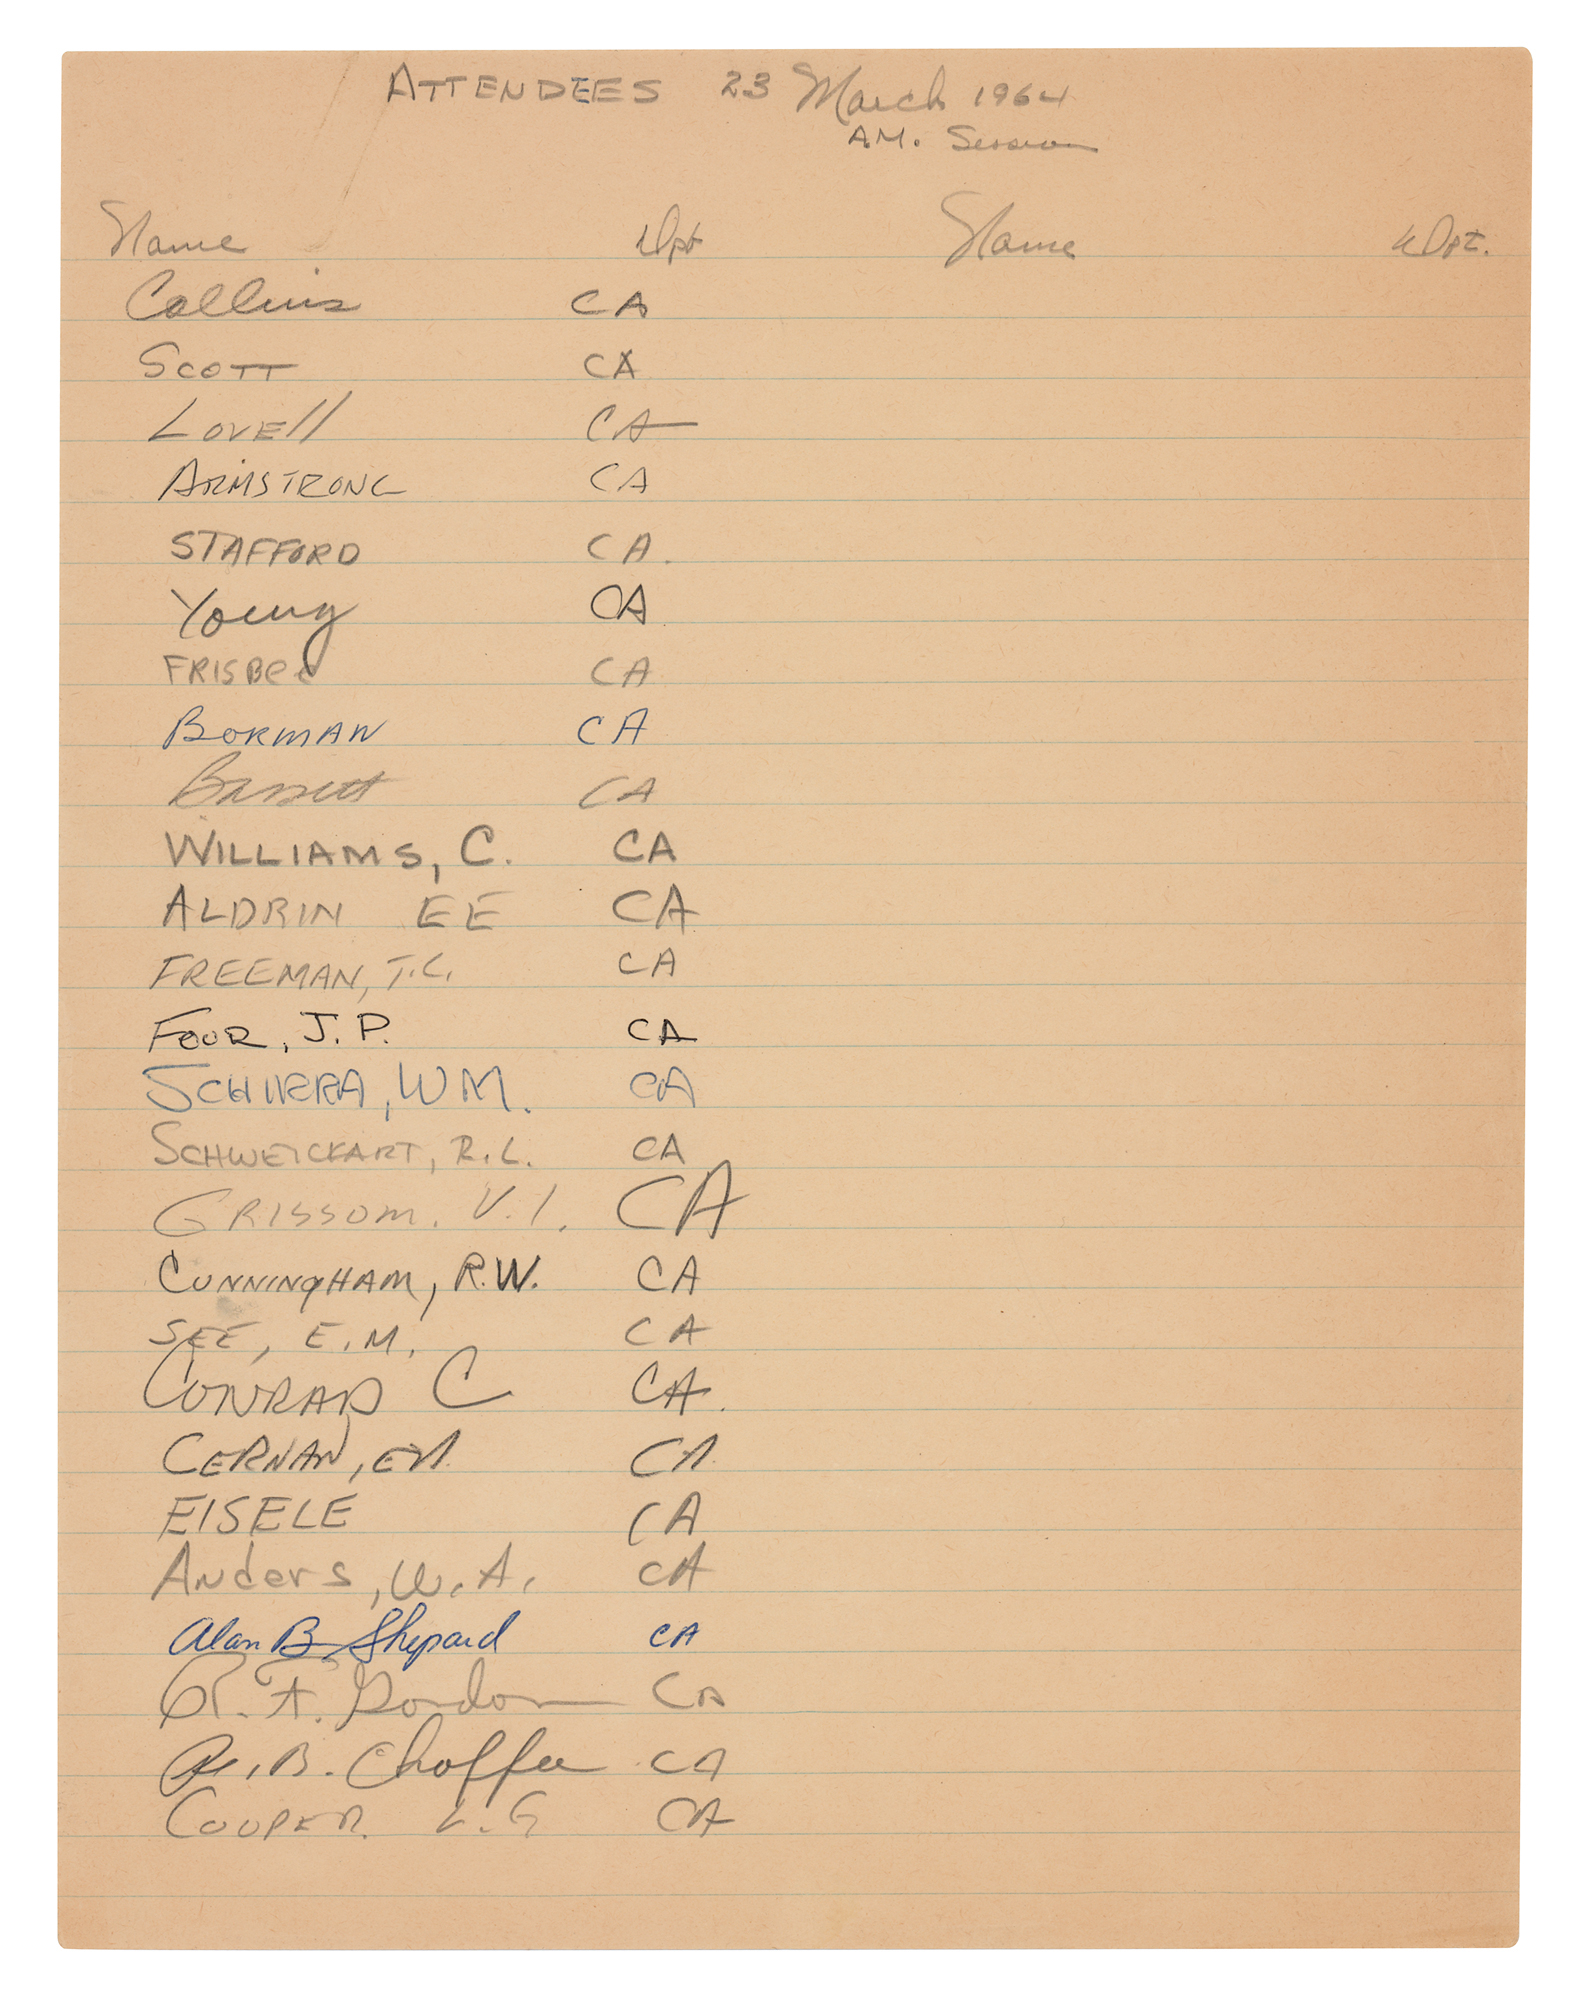 ATTENDEES 23 March 1964
A.M. Session
Name Dpt Name Dpt.
Collins CA
SCOTT CA
LOVEll CA
ARMSTRONG CA
STAFFORD CA.
Young CA
FRISBee CA
BORMAN CA
Bassett CA
WILLIAMS, C. CA
ALDRIN EE CA
FREEMAN, T.C. CA
FOUR, J.P. CA
SCHIRRA, WM. CA
SCHWEICKART, R.L. CA
GRISSOM. V.I. CA
CUNNINgHAM, R.W. CA
SEE, E.M. CA
CONRAD C CA.
CERNAN, EA. CA
EISELE CA
Anders, W.A. CA
Alan B Shepard CA
R.F. Gordon CA
R.B. Chaffee CA
COOPER. L.G CA